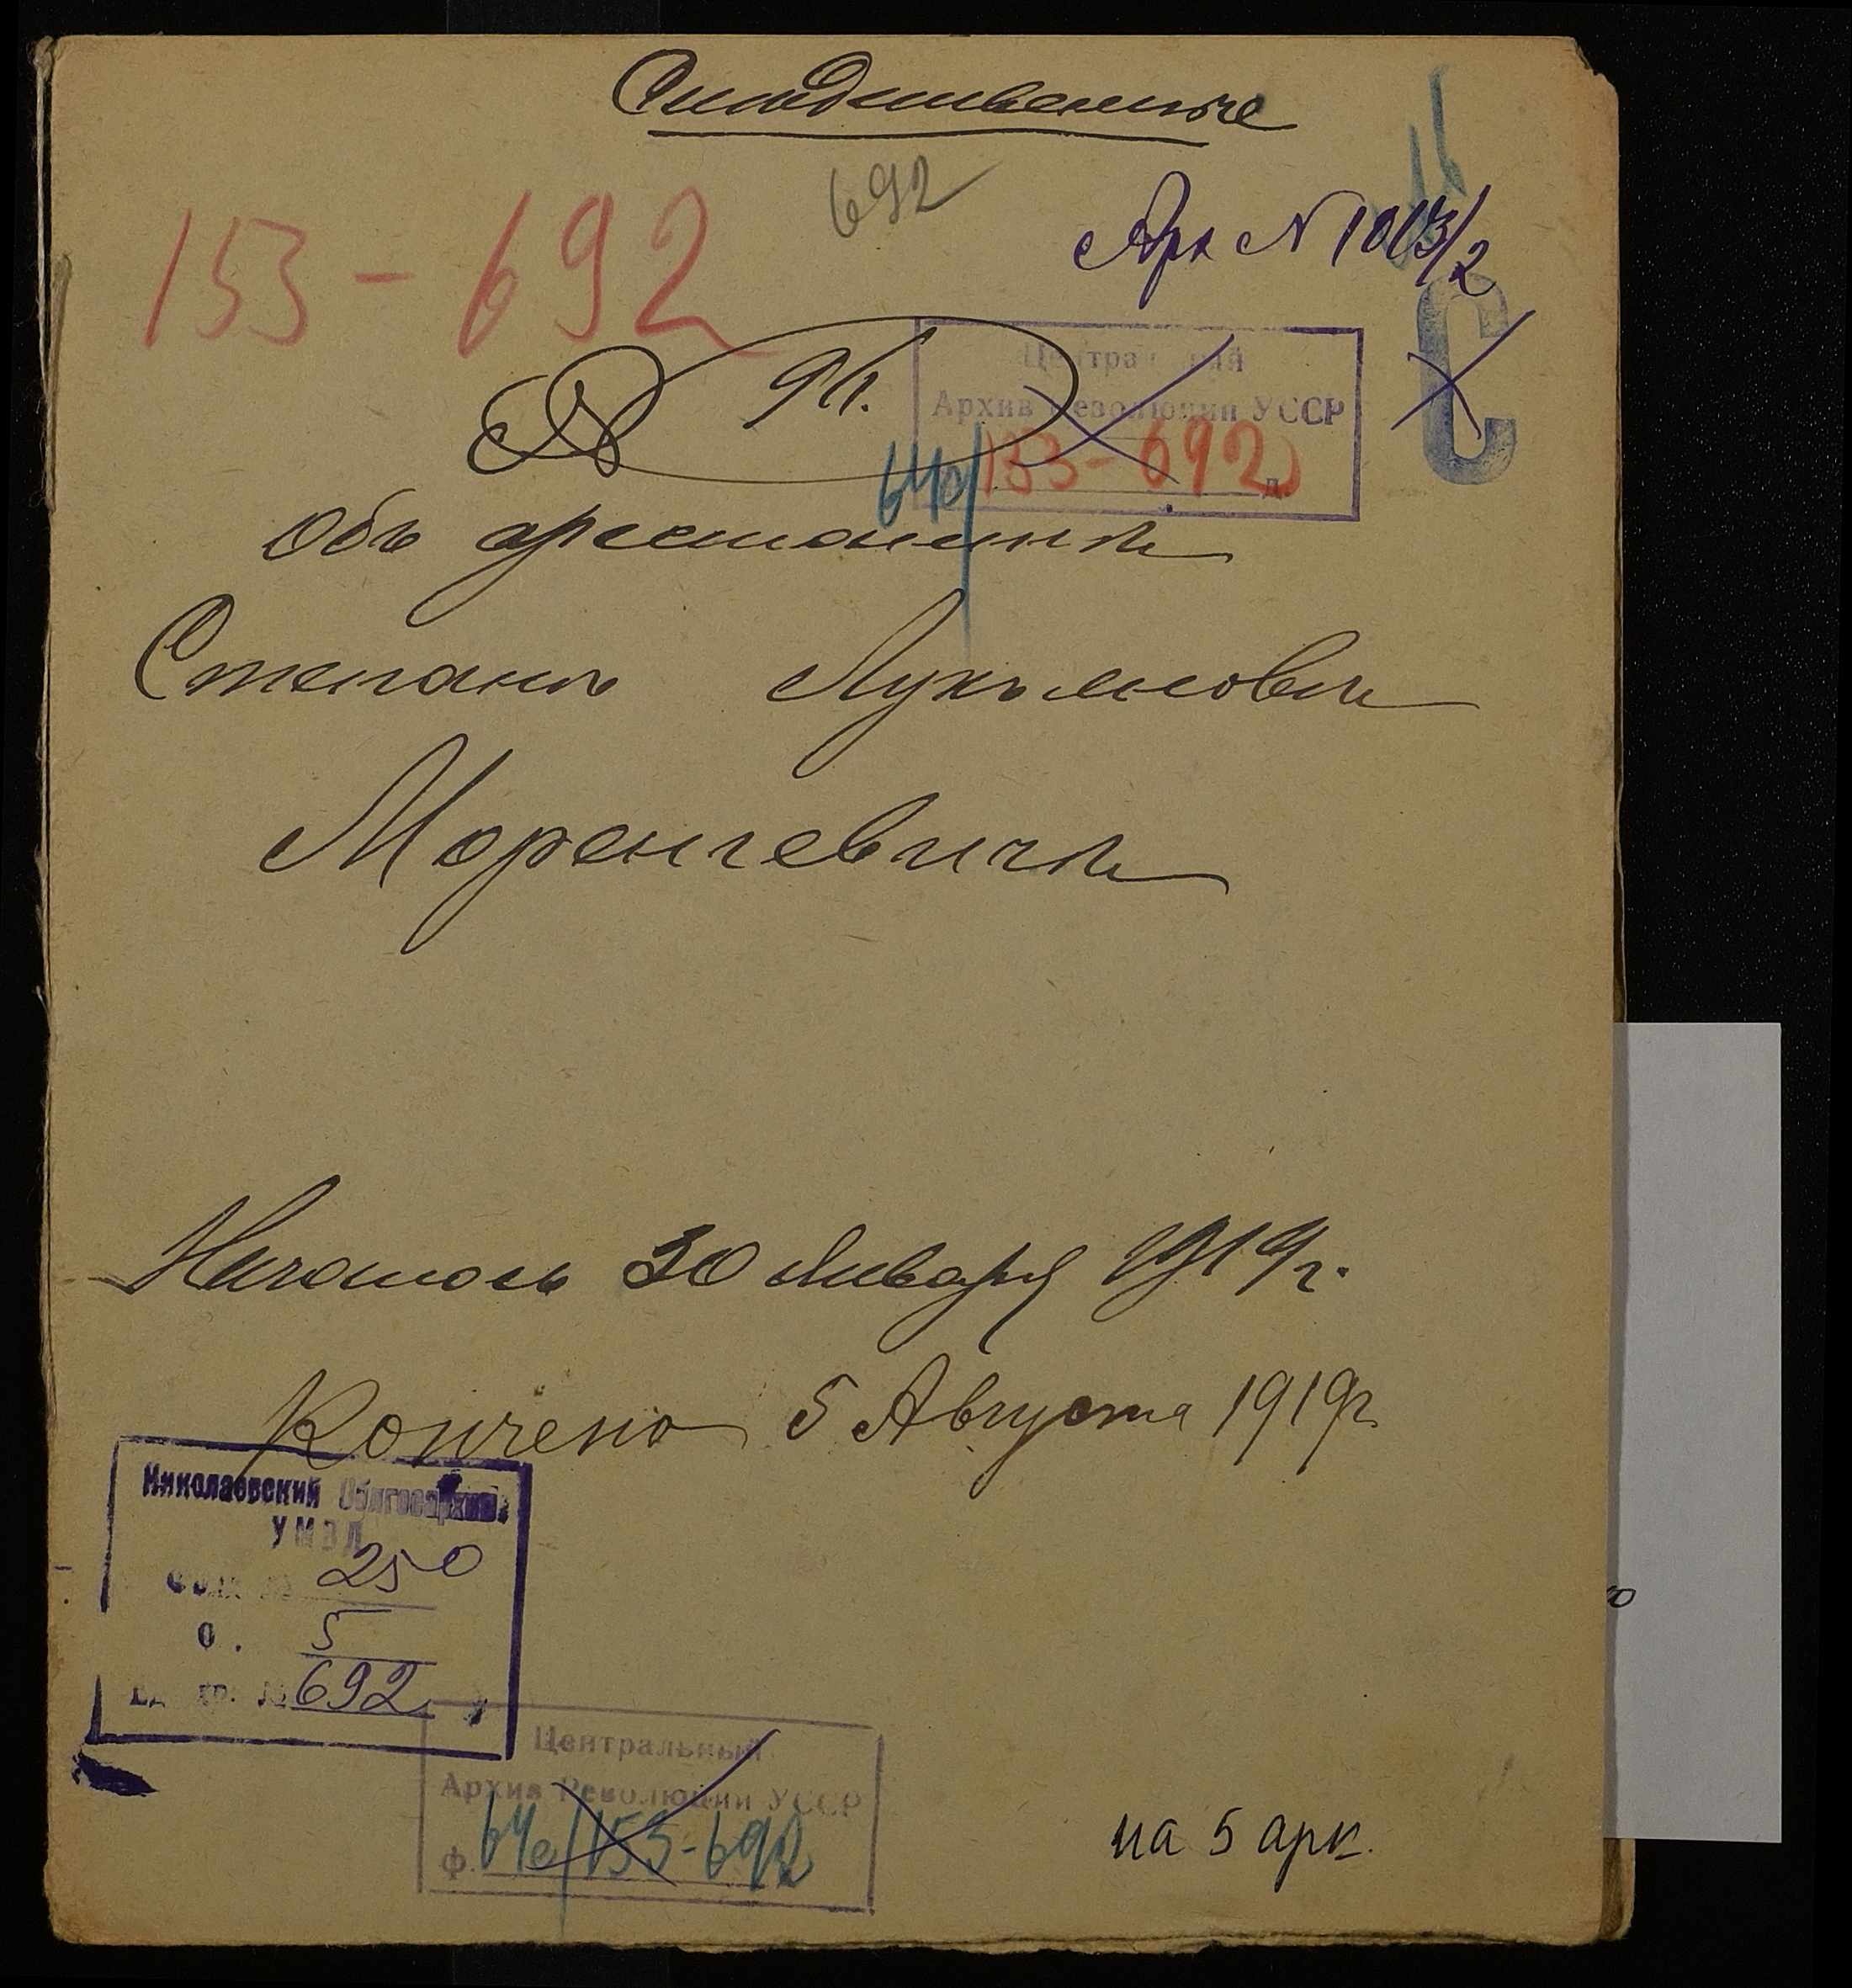 Слѣдственные
692
Арх N 1013/2
153-692
Центральный
Архив Революции УССР
64с/153-692 д.
С
Объ арестантѣ
Степанъ Лукьяновѣ
Моренгевичѣ
Началось 30 Января 1919 г.
Кончено 5 Августа 1919 г.
Николаевский Облгосархив
УМВД
Фонд № 250
О. 5
Ед. хр. № 692
Центральный
Архив Революции УССР
ф. 64с/153-692
на 5 арк.